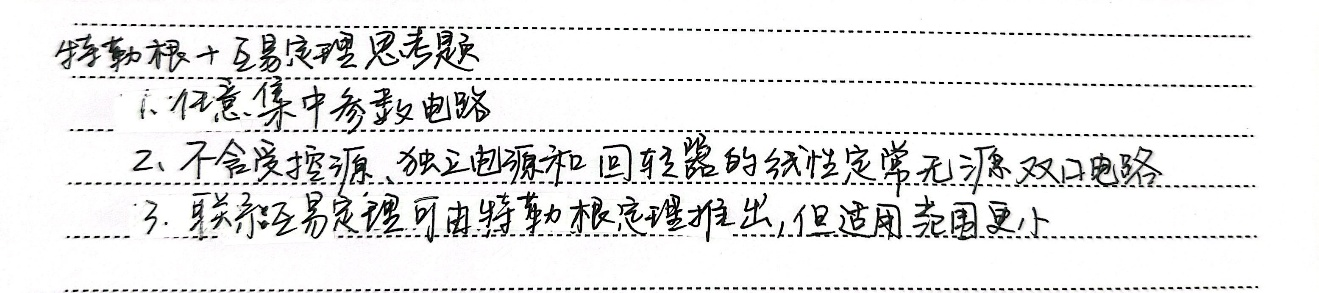 特勒根+互易定理思考题
1、任意集中参数电路
2、不含受控源、独立电源和回转器的线性定常无源双口电路
3、联系:互易定理可由特勒根定理推出,但适用范围更小